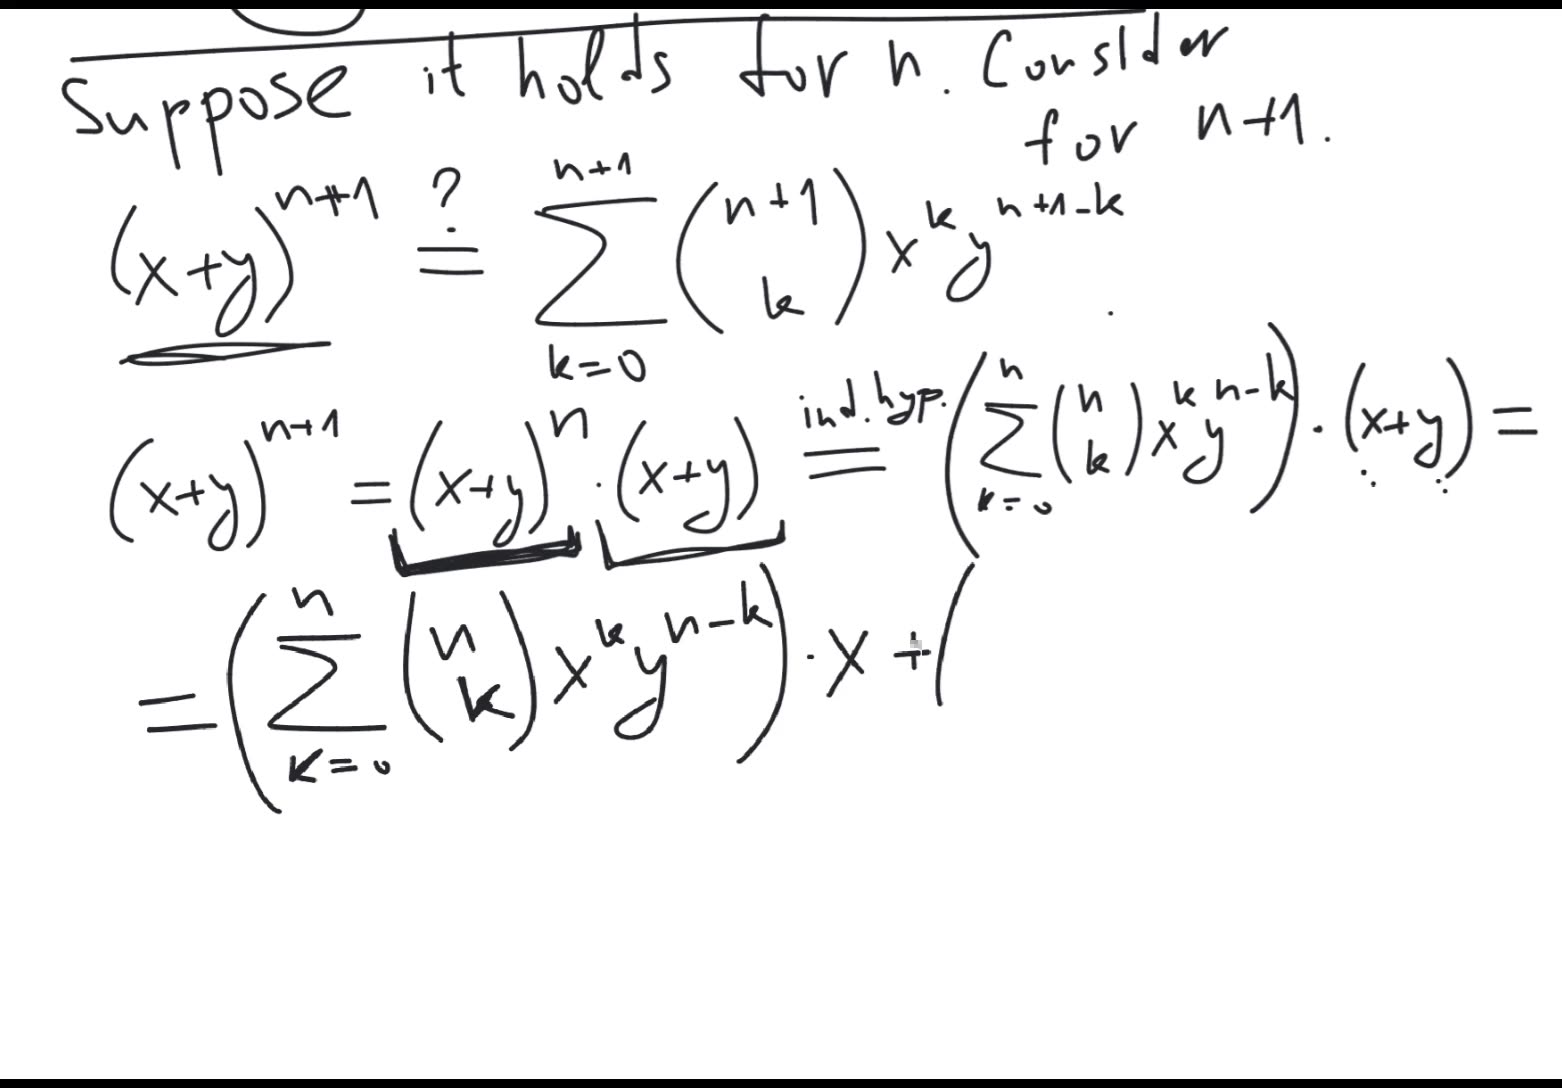 Suppose it holds for n. Consider
for n+1.
(x+y)^{n+1} ≟ \sum_{k=0}^{n+1} \binom{n+1}{k} x^k y^{n+1-k}
(x+y)^{n+1} = (x+y)^n · (x+y) \overset{ind. hyp.}{=} (\sum_{k=0}^{n} \binom{n}{k} x^k y^{n-k}) · (x+y) =
= (\sum_{k=0}^{n} \binom{n}{k} x^k y^{n-k}) · x + (